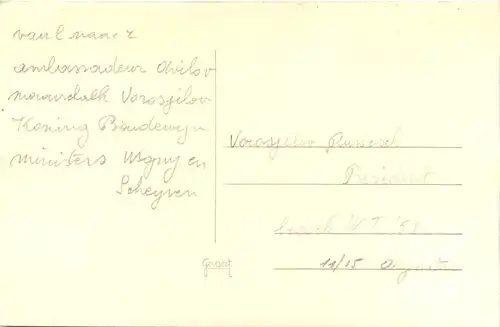 van l naar r
ambassadeur Avilov
maarschalk Vorosjilov
Koning Boudewyn
ministers Wigny en
Scheyven
Vorosjilov Russisch
President
W T '58
11/15